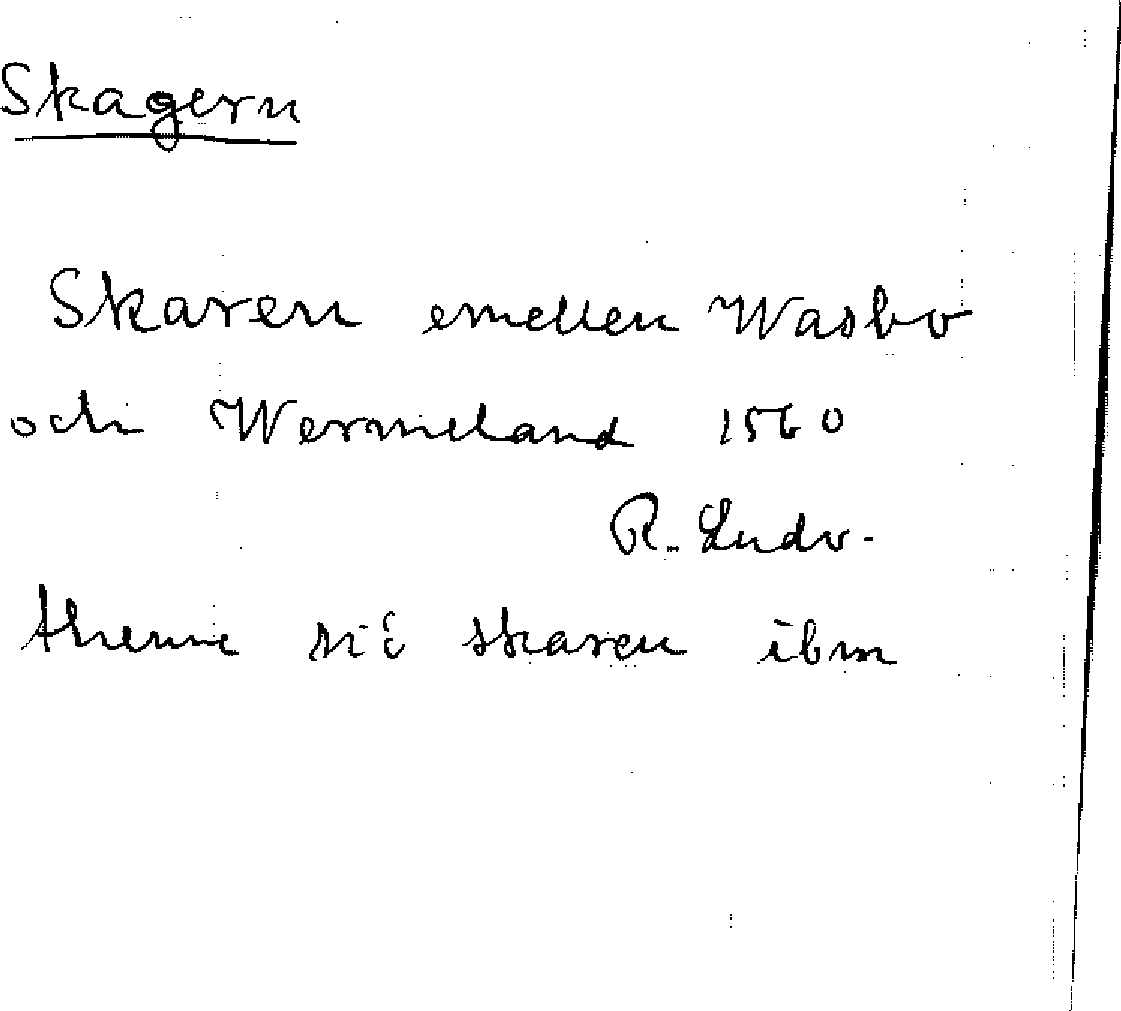 Skagern
Skaren emellen Wasbo
och Wermeland 1560
R. Ludv.
thenne skaren ibm